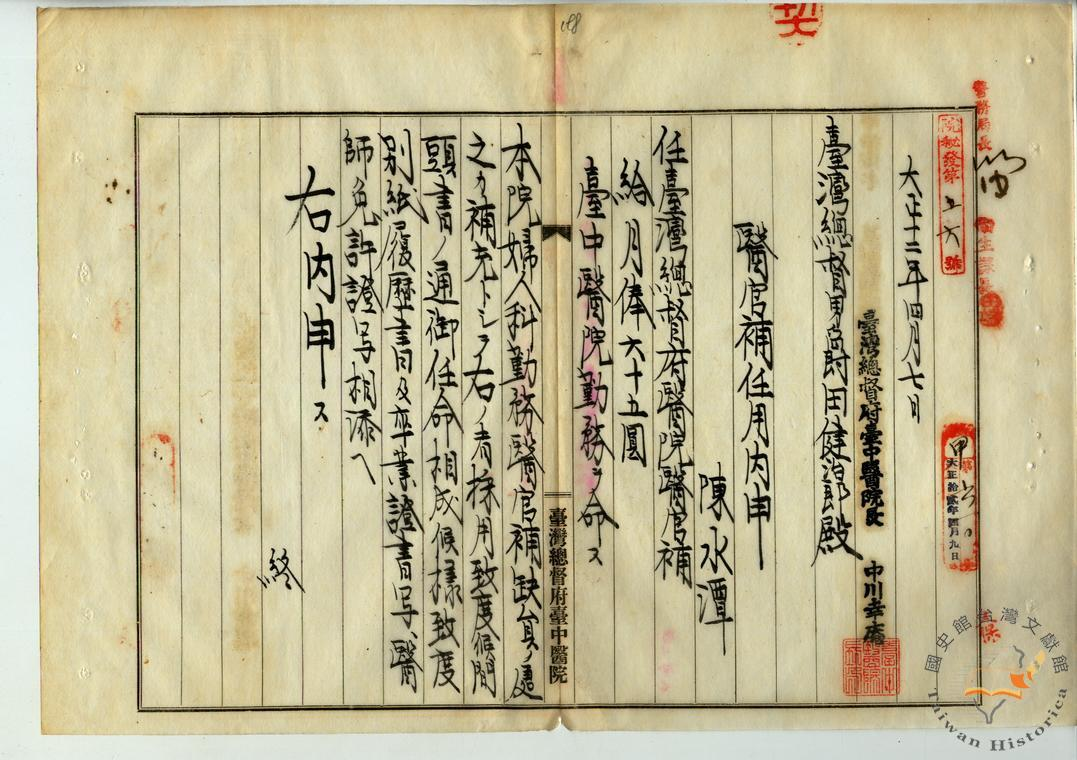 院秘發第五六號
大正十二年四月七日
大正拾貳年四月九日
臺灣總督府臺中醫院長 中川幸庵
臺灣總督男爵田健治郎殿
醫官補任用內申
陳水潭
任臺灣總督府醫院醫官補
給月俸六十五圓
臺中醫院勤務ヲ命ス
本院婦人科勤務醫官補缺員ノ處
之カ補充トシテ右ノ者採用致度候間
頭書ノ通御任命相成候樣致度
別紙履歷書及卒業證書写、醫
師免許證写相添へ
右內申ス
終
臺灣總督府臺中醫院
警務局長
國史館臺灣文獻館
Taiwan Historica